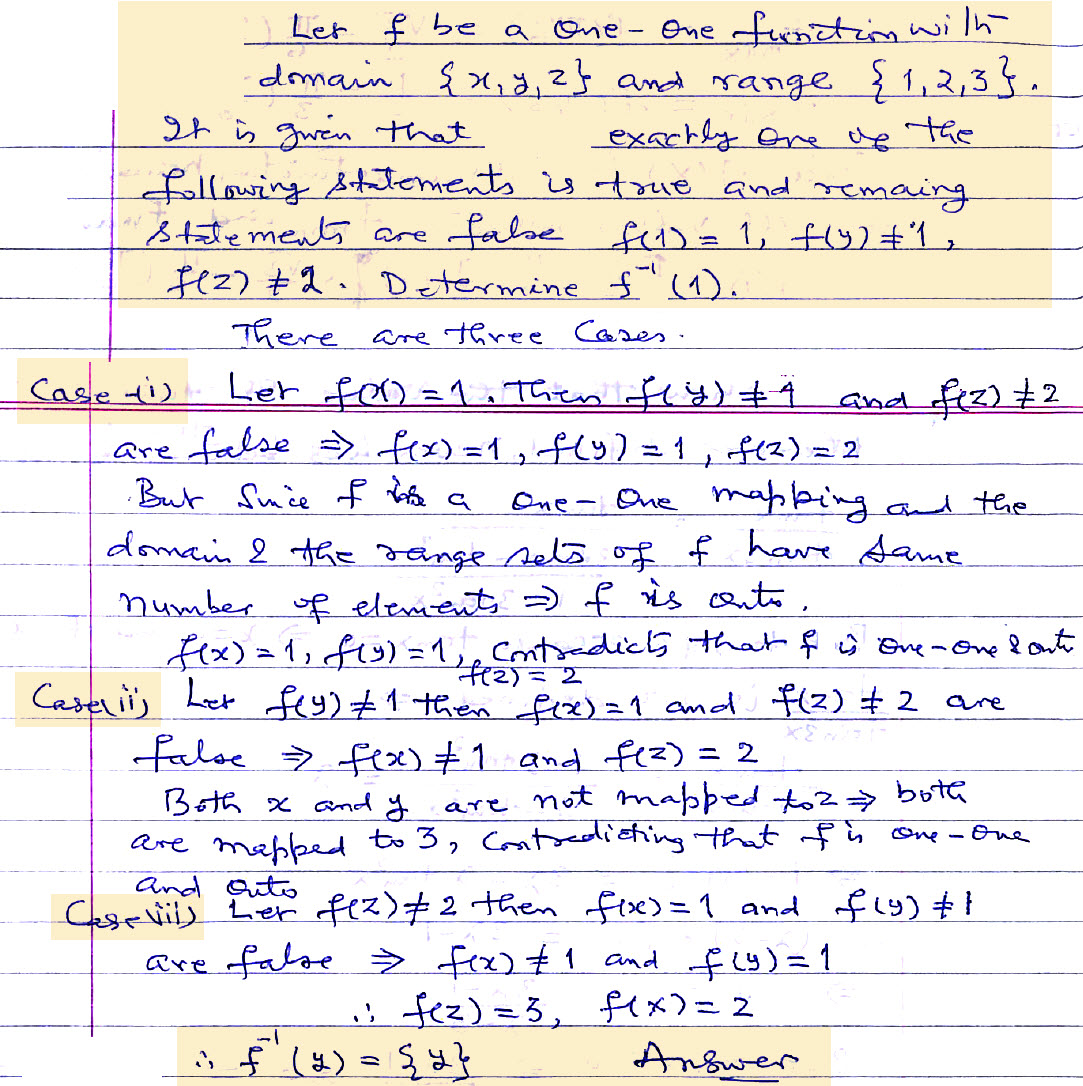 Let f be a one-one function with
domain {x, y, z} and range {1, 2, 3}.
It is given that exactly one of the
following statements is true and remaing
statements are false f(1) = 1, f(y) ≠ 1,
f(z) ≠ 2. Determine f⁻¹(1).
There are three Cases.
Case (i) Let f(x) = 1. Then f(y) ≠ 1 and f(z) ≠ 2
are false ⇒ f(x) = 1, f(y) = 1, f(z) = 2
But Since f is a one-one mapping and the
domain & the range sets of f have same
number of elements ⇒ f is onto.
f(x) = 1, f(y) = 1, f(z) = 2 Contradicts that f is one-one & onto
Case(ii) Let f(y) ≠ 1 then f(x) = 1 and f(z) ≠ 2 are
false ⇒ f(x) ≠ 1 and f(z) = 2
Both x and y are not mapped to 2 ⇒ both
are mapped to 3, Contradicting that f is one-one
and onto
Case(iii) Let f(z) ≠ 2 then f(x) = 1 and f(y) ≠ 1
are false ⇒ f(x) ≠ 1 and f(y) = 1
∴ f(z) = 3, f(x) = 2
∴ f⁻¹(y) = {y} Answer